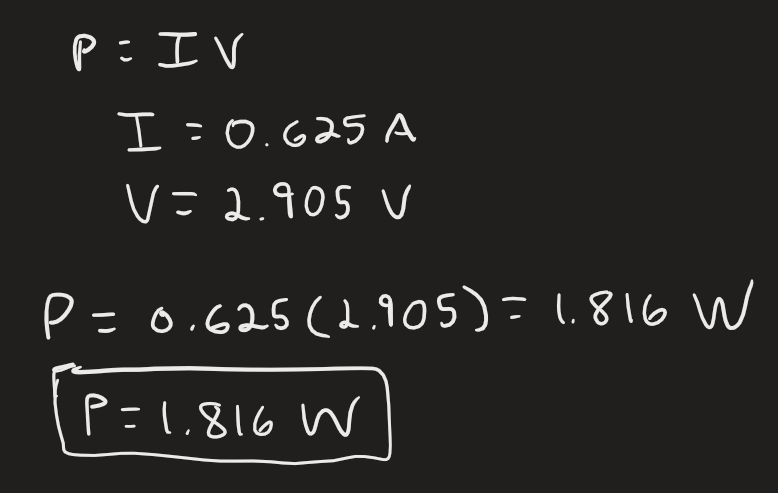 P = IV
I = 0.625 A
V = 2.905 V
P = 0.625(2.905) = 1.816 W
P = 1.816 W